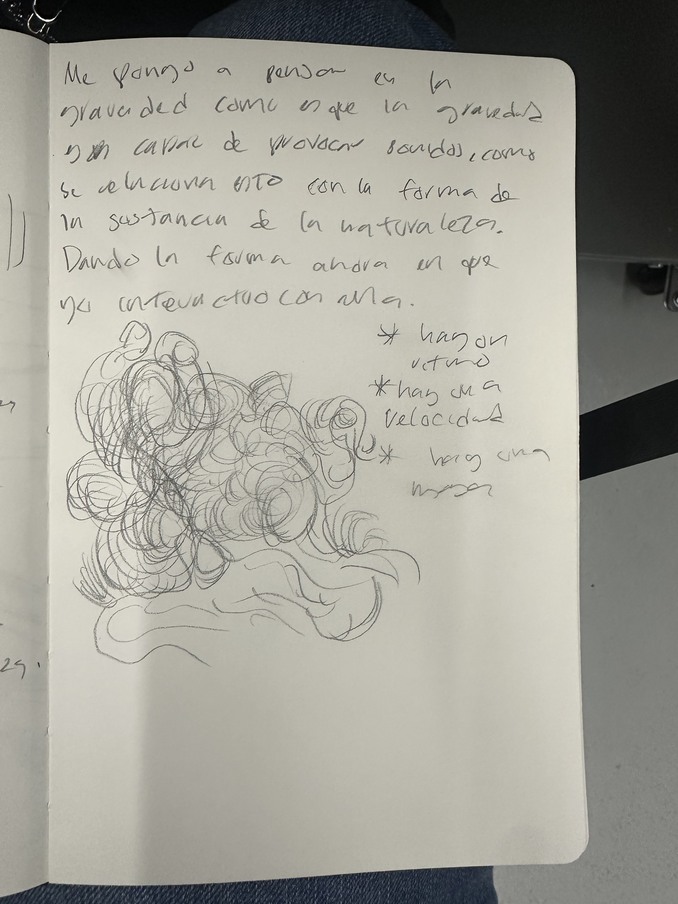 Me pongo a pensar en la
gravedad como es que la gravedad
es capaz de provocar sonidos, como
se relaciona esto con la forma de
la sustancia de la naturaleza.
Dando la forma ahora en que
yo interactuo con ella.
* hay un
ritmo
* hay una
velocidad
* hay una
masa
29.